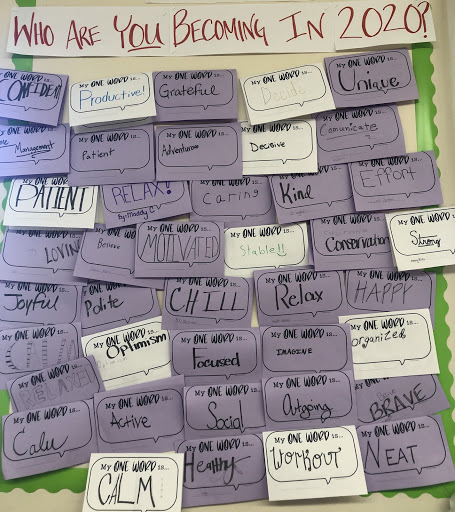 WHO ARE YOU BECOMING IN 2020?
MY ONE WORD IS...
CONFIDENT
MY ONE WORD IS...
Productive!
MY ONE WORD IS...
Grateful
MY ONE WORD IS...
Decide
MY ONE WORD IS...
Unique
ONE WORD IS...
Management
MY ONE WORD IS...
Patient
MY ONE WORD IS...
Adventurous
MY ONE WORD IS...
Decisive
MY ONE WORD IS...
Comunicate
MY ONE WORD IS...
PATIENT
MY ONE WORD IS...
RELAX!
by: Maddy
MY ONE WORD IS...
Caring
MY ONE WORD IS...
Kind
MY ONE WORD IS...
Effort
MY ONE WORD IS...
LOVING
MY ONE WORD IS...
Believe
MY ONE WORD IS...
MOTIVATED
MY ONE WORD IS...
Stable!!
MY ONE WORD IS...
Conservation
MY ONE WORD IS...
Strong
MY ONE WORD IS...
Joyful
MY ONE WORD IS...
Polite
MY ONE WORD IS...
CHILL
MY ONE WORD IS...
Relax
MY ONE WORD IS...
HAPPY
MY ONE WORD IS...
MY ONE WORD IS...
Optimism
MY ONE WORD IS...
Focused
MY ONE WORD IS...
IMAGINE
MY ONE WORD IS...
organized
MY ONE WORD IS...
RELAXED
MY ONE WORD IS...
Calm
MY ONE WORD IS...
Active
MY ONE WORD IS...
Social
MY ONE WORD IS...
MY ONE WORD IS...
BRAVE
MY ONE WORD IS...
CALM
MY ONE WORD IS...
Healthy
MY ONE WORD IS...
Workout
MY ONE WORD IS...
NEAT